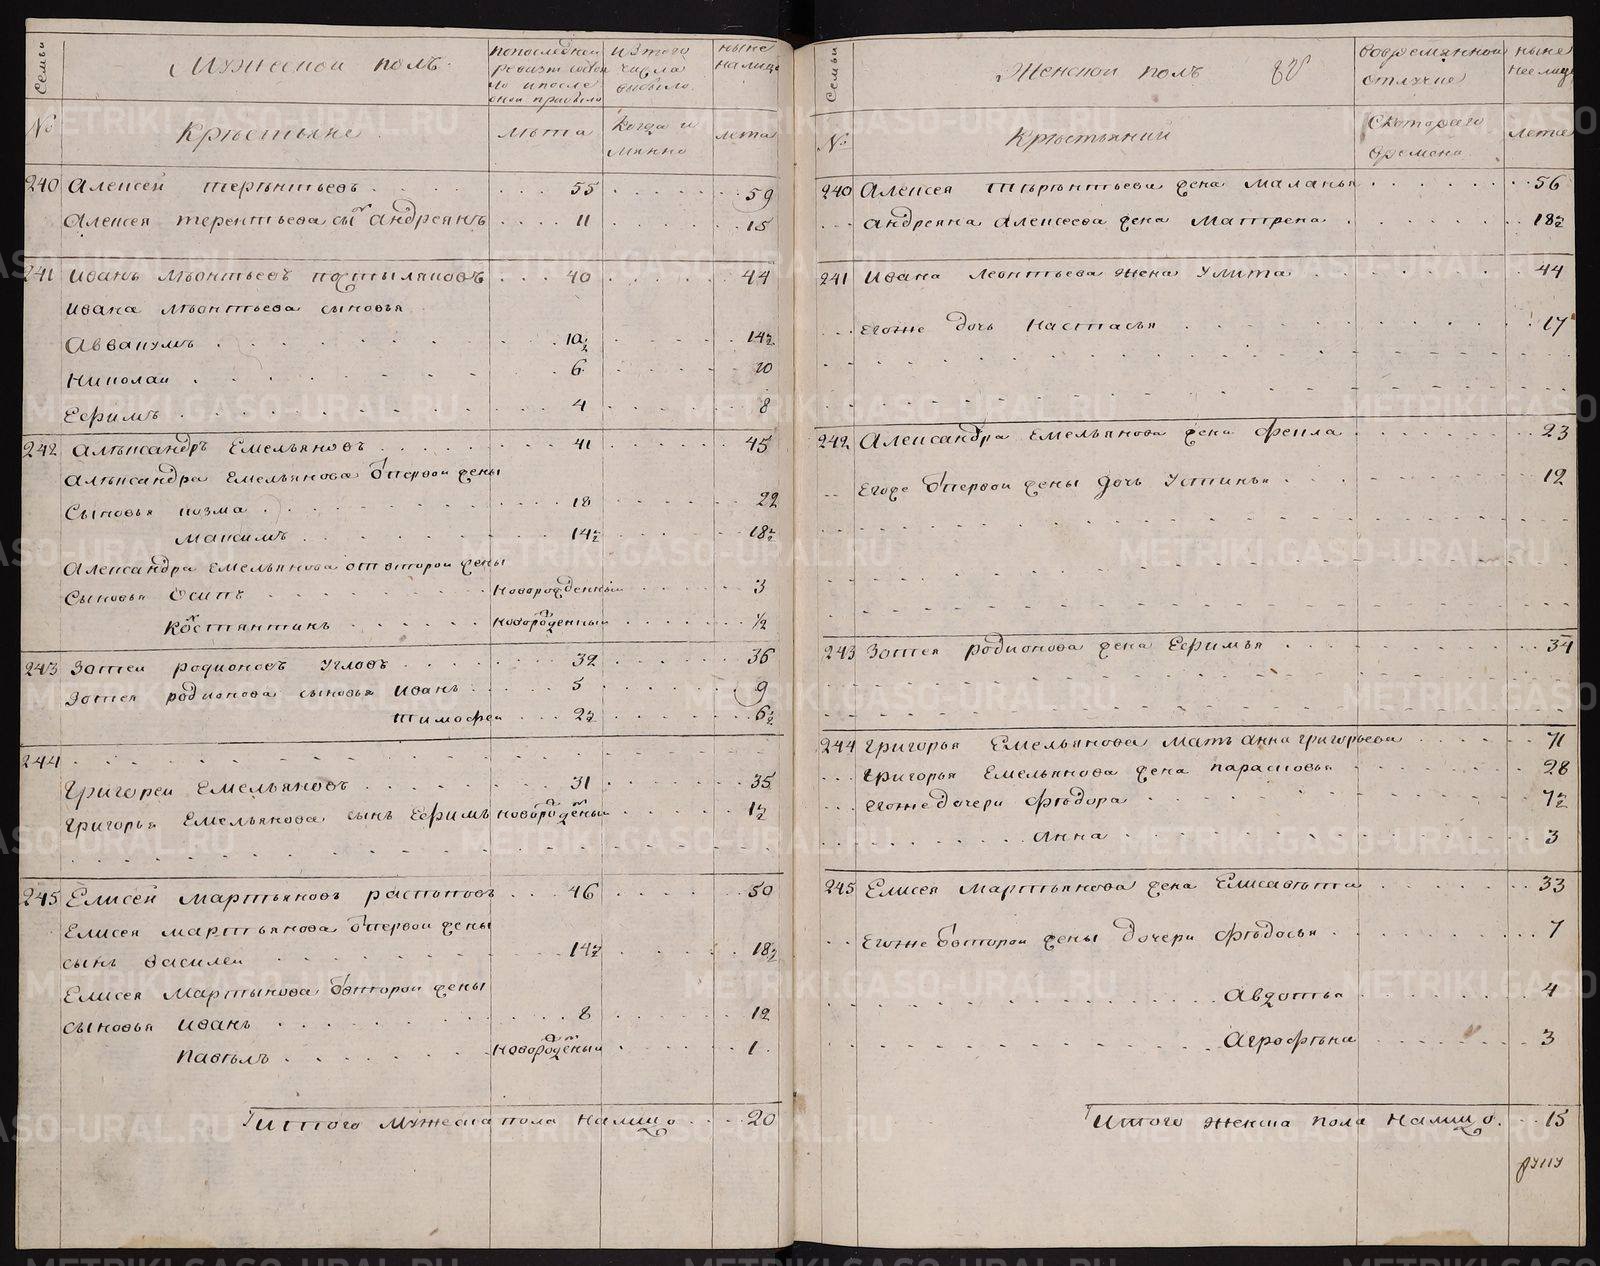 Семьи
Мужеской полъ
по последней
ревизии состояло
и после
оной прибыло
из того
числа
выбыло
ныне
на лицо
№
Крѣстьяне
лѣта
когда и
лѣта
240 Алексей терѣнтьевъ 55 59
Алексея терентьева сынъ андреянъ 11 15
241 Иванъ лѣонтьевъ 40 44
Ивана лѣонтьева сыновья
Аввакумъ 10½ 14½
Николаи 6 10
Ефимъ 4 8
242 Алѣксандръ Емельяновъ 41 45
Алѣксандра Емельянова от первои жены
Сыновья козма 18 22
Максимъ 14½ 18½
Александра Емельянова от второи жены
Сыновья Осипъ новорожденный 3
Костянтинъ новорожденный ½
243 Зотеи родионовъ Угловъ 32 36
Зотея родионова сыновья Иванъ 5 9
тимофеи 2½ 6½
244
Григореи Емельяновъ 31 35
Григорья Емельянова сынъ Ефимъ новорожденый 1½
245 Елисей мартьяновъ распоповъ 46 50
Елисея мартьянова от первои жены
сынъ Василеи 14½ 18½
Елисея Мартьянова от второи жены
сыновья Иванъ 8 12
Павѣлъ новорожденый 1
Итого Мужеска пола на лицо 20
Семьи
Женской полъ
во временной
отлучке
ныне
на лицо
№
Крѣстьянки
С которого
времени
лета
240 Алексея тѣрѣнтьева жена маланья 56
андреяна Алексеева жена Матрена 18½
241 Ивана Леонтьева жена Улита 44
Егоже дочь Настасья 17
242 Александра Емельянова жена фекла 23
Егоже от первои жены дочь Устинья 12
243 Зотея родионова жена Ефимья 34
244 Григорья Емельянова мать анна григорьева 71
Григорья Емельянова жена парасковья 28
Егоже дочери фѣдора 7½
Анна 3
245 Елисея Мартьянова жена Елисавѣта 33
Егоже от второи жены дочери фѣдосья 7
Авдотья 4
Агрофѣна 3
Итого женска пола на лицо 15
METRIKI.GASO-URAL.RU